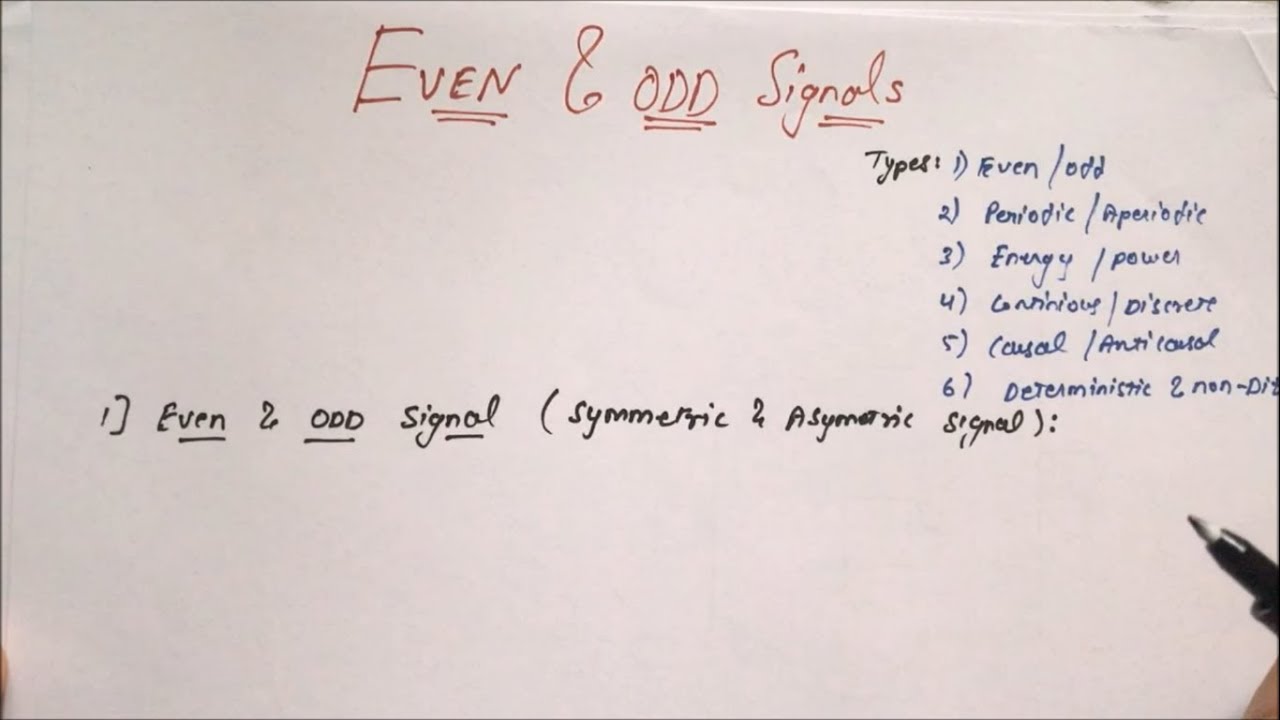 EVEN & ODD Signals
Types: 1) Even / odd
2) Periodic / Aperiodic
3) Energy / power
4) Continious / Discrete
5) Causal / Anticausal
6) Deterministic & non-Dit
1] Even & ODD Signal (Symmetric & Asymetric signal):